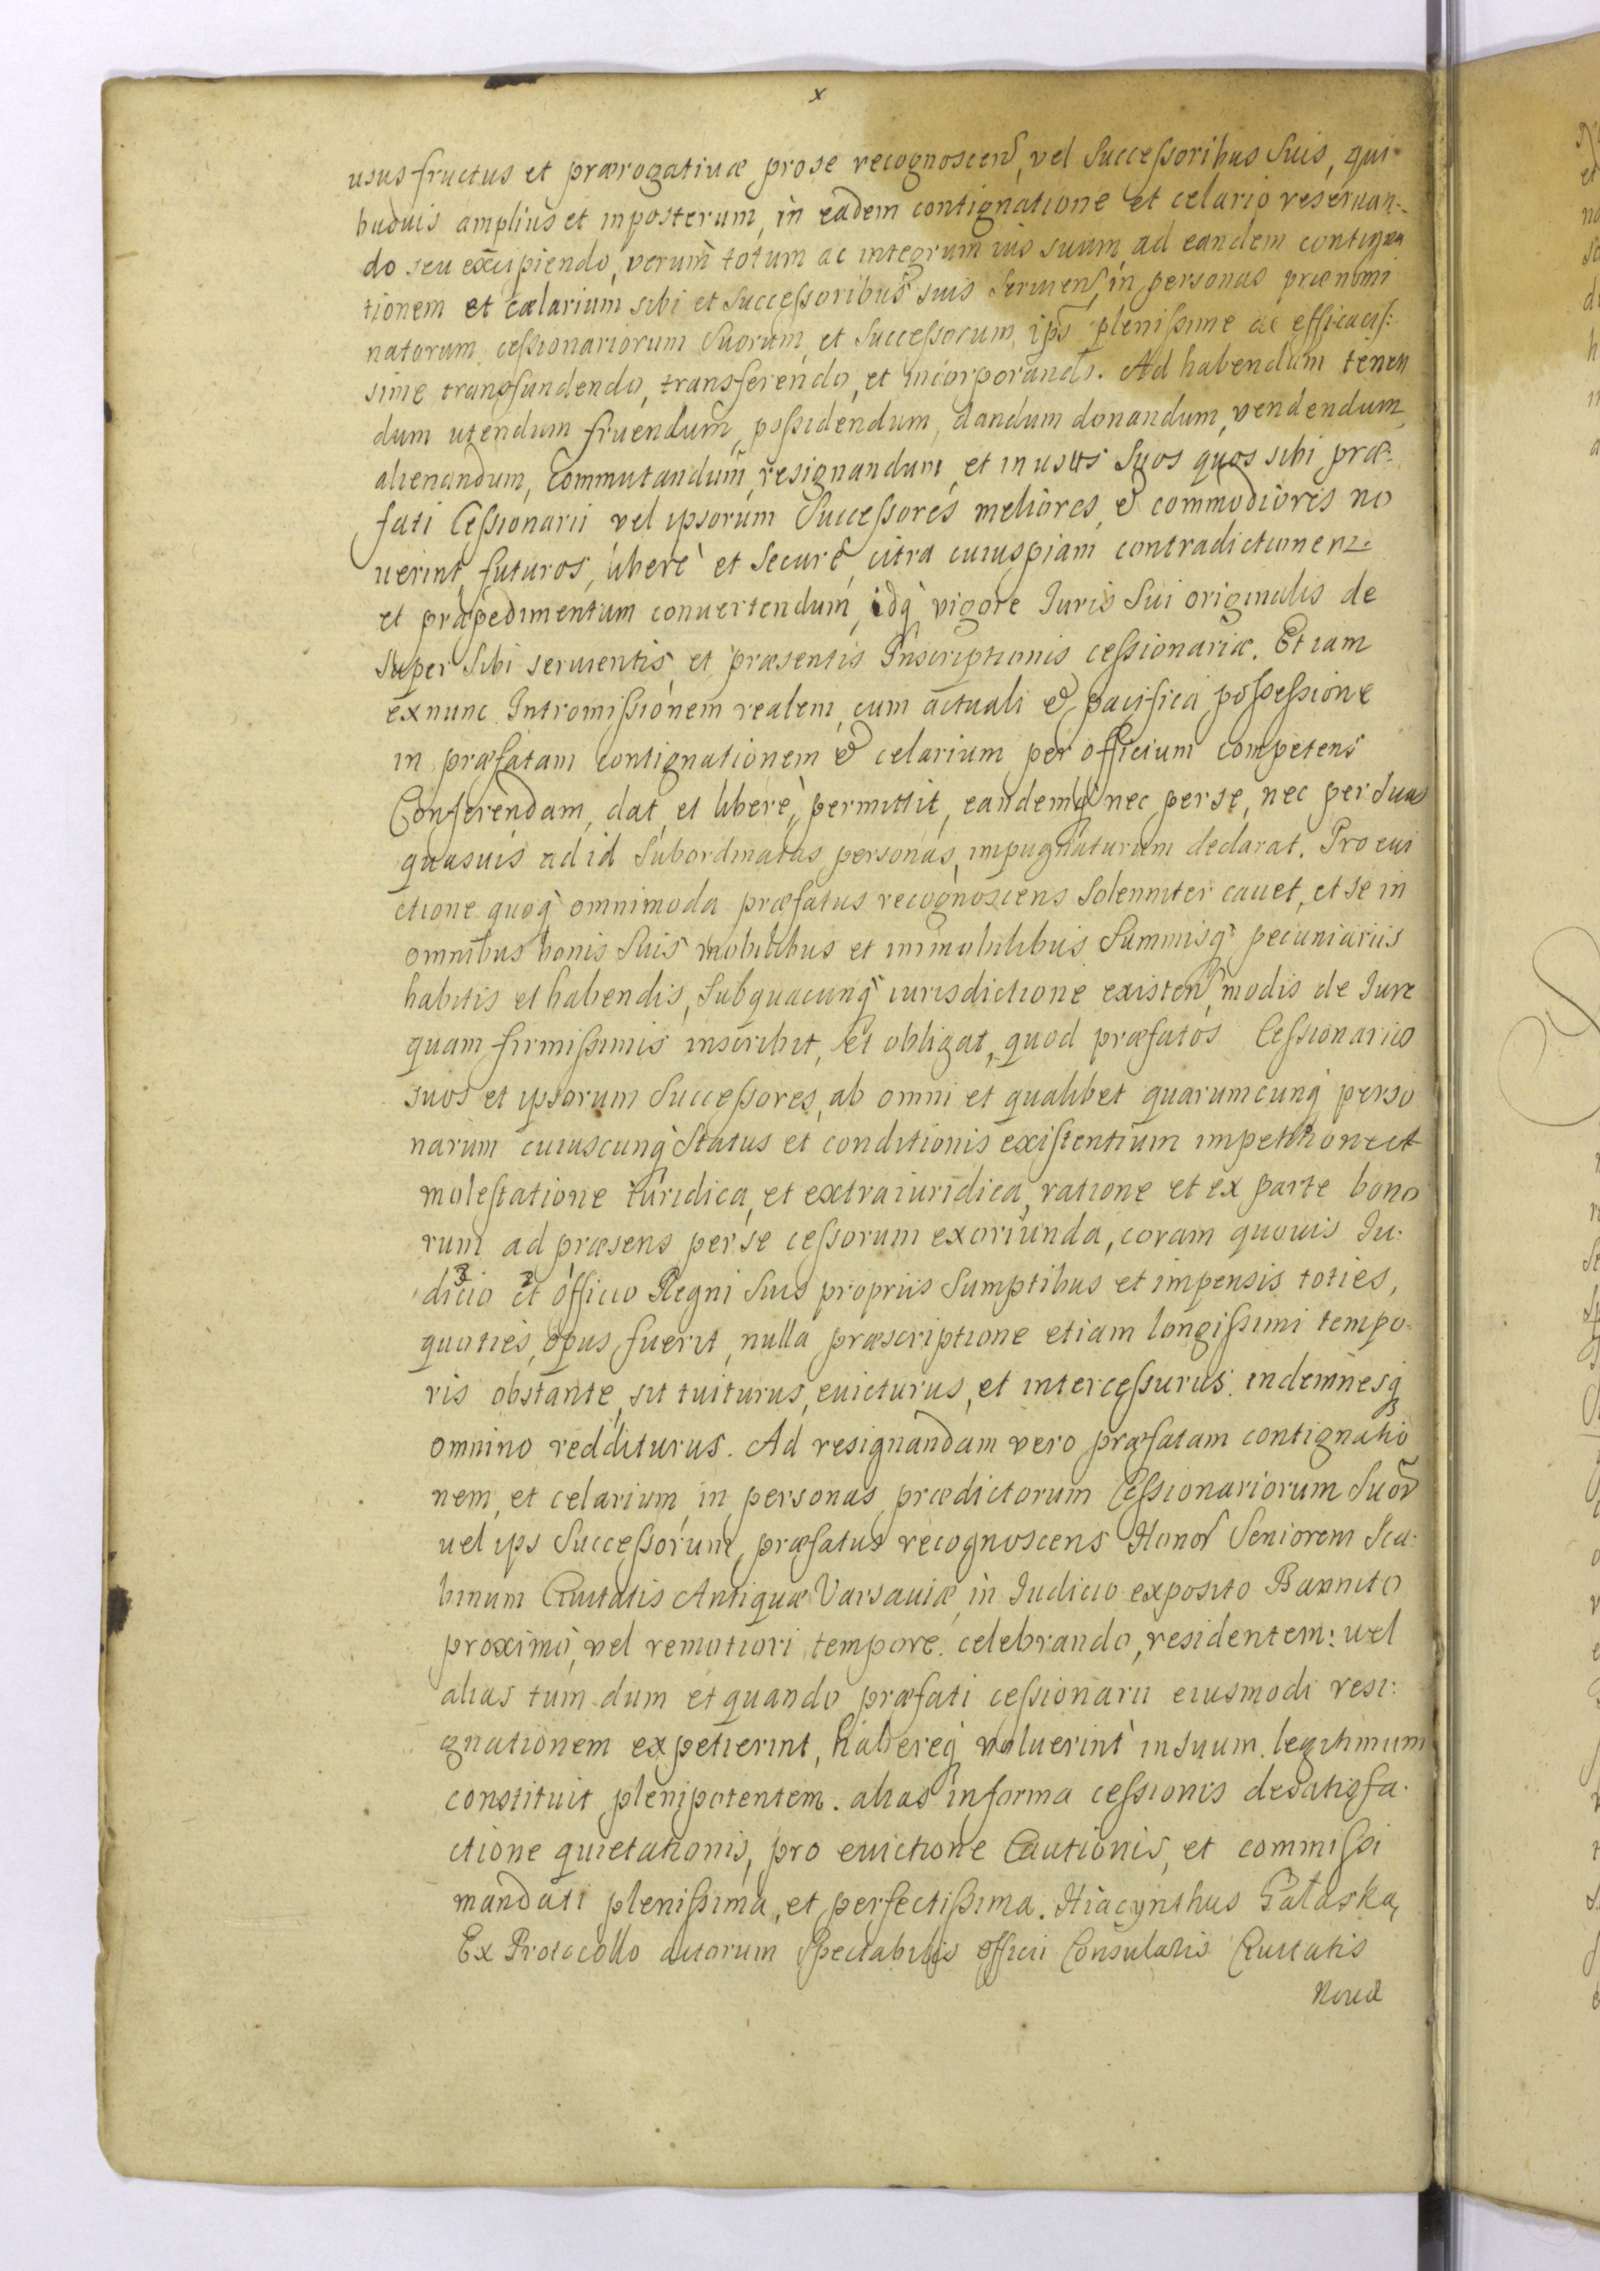 x
usus fructus et prærogativæ pro se recognoscens, vel Successoribus Suis, qui-
busuis amplius et inposterum, in eadem contignatione et celario reseruan-
do seu excipiendo, verum totum ac integrum ius suum ad eandem contigna
tionem et cælarium sibi et Successoribus suis Seruiens, in personas prænomi
natorum cessionariorum Suorum, et Successorum, ips plenissime ac efficacis:
sime transfundendo, transferendo, et incorporando. Ad habendum tenen
dum utendum fruendum, possidendum, dandum donandum, vendendum,
alienandum, Commutandum, resignandum, et in usus Suos quos sibi præ:
fati Cessionarii vel ipsorum Successores meliores, & commodioris no
uerint, futuros, liberè et Securè, citra cuiuspiam contradictionem
et præpedimentum conuertendum, idq vigore Juris Sui originalis de
super Sibi seruientis, et præsentis Inscriptionis cessionariæ. Et iam
ex nunc Intromissionem realem, cum actuali & pacifica possessione
in præfatam contignationem & celarium per officium competens
Conferendam, dat, et liberè, permittit, eandemq nec per se, nec per Suas
quasuis ad id Subordinatas personas, impugnaturum declarat. Pro eui
ctione quoq omnimoda præfatus recognoscens Solenniter cauet, et Se in
omnibus bonis Suis mobilibus et immobilibus Summisq pecuniariis
habitis et habendis, Sub quacunq iurisdictione existen, modis de Jure
quam firmissimis inscribit, et obligat, quod præfatos Cessionarios
suos et ipsorum Successores, ab omni et qualibet quarumcunq perso
narum cuiuscunq Status et conditionis existentium impetitione et
molestatione iuridica, et extraiuridica, ratione et ex parte bono
rum ad præsens per se cessorum exoriunda, coram quouis Ju:
dicio 3 et 2 officio Regni Suis propriis Sumptibus et impensis toties,
quoties, opus fuerit, nulla præscriptione etiam longissimi tempo-
ris obstante, sit tuiturus, euicturus, et intercessurus. indemnesq
omnino redditurus. Ad resignandam vero præfatam contignatio
nem, et celarium, in personas prædictorum Cessionariorum Suor
uel ips Successorum, præfatus recognoscens Honor Seniorem Sca:
binum Ciuitatis Antiquæ Varsauiæ, in Judicio exposito Bannito
proximò, vel remotiori tempore celebrando, residentem: uel
alias tum dum et quando præfati cessionarii eiusmodi resi:
gnationem expetierint, habereq voluerint in suum legitimum
constituit plenipotentem. alias in forma cessionis de satisfa-
ctione quietationis, pro euictione Cautionis, et commissi
mandati plenissima, et perfectissima. Hiacynthus Gałaska,
Ex Protocollo actorum Spectabilis officii Consularis Ciuitatis
Nouæ